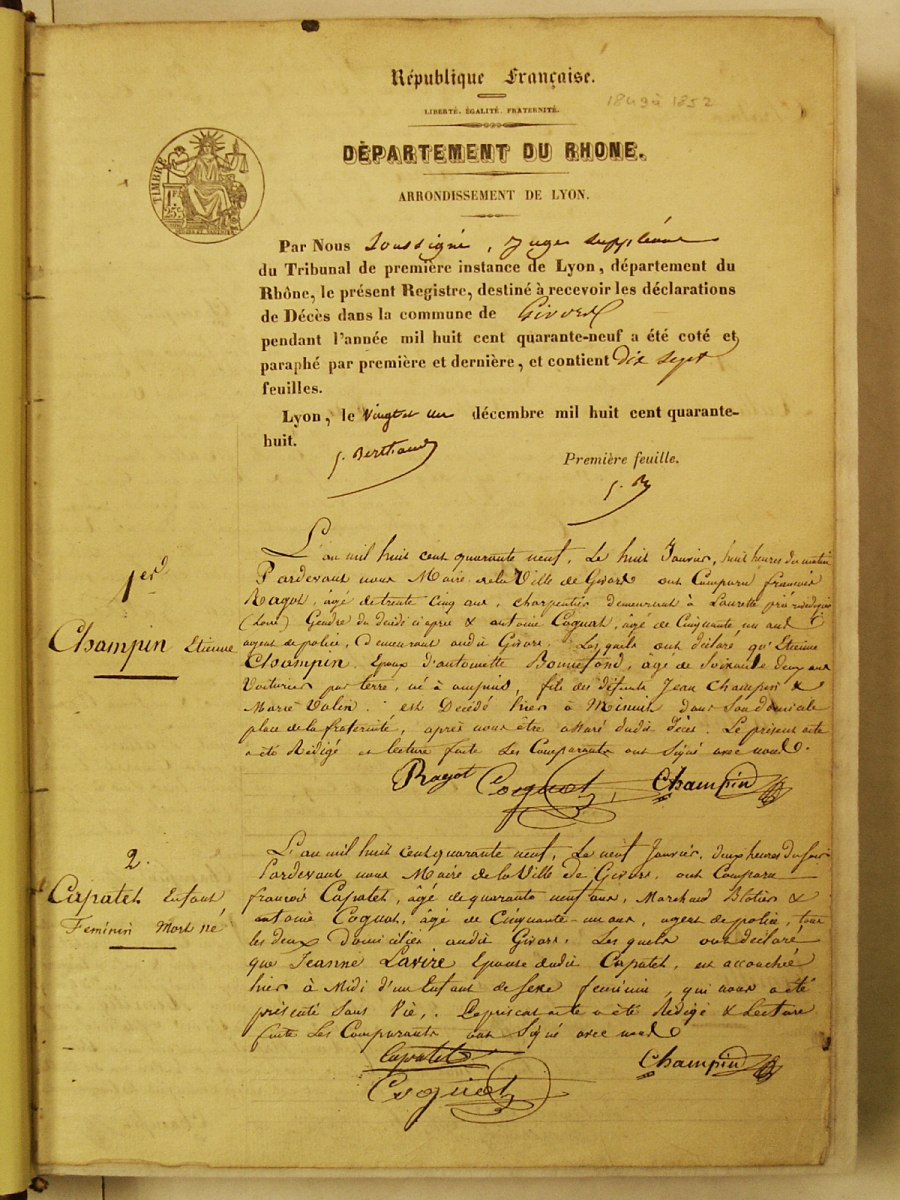 République Française.
1849 à 1852
LIBERTÉ, ÉGALITÉ, FRATERNITÉ.
DÉPARTEMENT DU RHONE.
TIMBRE
1 F.
25 c.
ARRONDISSEMENT DE LYON.
Par Nous Soussigné, Juge suppléant
du Tribunal de première instance de Lyon, département du
Rhône, le présent Registre, destiné à recevoir les déclarations
de Décès dans la commune de Givors
pendant l'année mil huit cent quarante-neuf a été coté et
paraphé par première et dernière, et contient dix sept
feuilles.
Lyon, le Vingt et un décembre mil huit cent quarante-
huit.
Première feuille.
1er
Champin Etienne
L'an mil huit cent quarante neuf, Le huit Janvier, huit heures du matin
Pardevant nous Maire de la Ville de Givors ont Comparu françois
Ragot, âgé de trente cinq ans, charpentier demeurant à Lorette
(Loire) Gendre du décédé ci après & antoine Coquat, âgé de Cinquante un ans
agent de police, Demeurant audit Givors. Les quels ont déclaré qu'Etienne
Champin Epoux d'antoinette Bonnefond, âgé de Soixante deux ans
Voiturier par terre, né à ampuis, fils des défunts Jean Champin &
Marie Valin. est Décédé hier à Minuit dans Son domicile
place de la fraternité, après nous être assuré dudit Décès. Le présent acte
a été Rédigé et lecture faite Les Comparants ont Signé avec nous.
Ragot Coquat Champin
2.
Capatet Enfant
Feminin Mort né
L'an mil huit cent quarante neuf, Le neuf Janvier, deux heures du soir
Pardevant nous Maire de la Ville de Givors, ont Comparu
françois Capatet, âgé de quarante neuf ans, Marchand Blatier &
antoine Coquat, âgé de Cinquante-un ans, agent de police, tous
les deux Domiciliés audit Givors. Les quels ont déclaré
que Jeanne Lavire Epouse dudit Capatet, est accouchée
hier à Midi d'un Enfant de Sexe feminin, qui nous a été
présenté Sans Vie. Le présent acte a été Rédigé & Lecture
faite Les Comparants ont Signé avec nous
Capatet Champin
Coquat